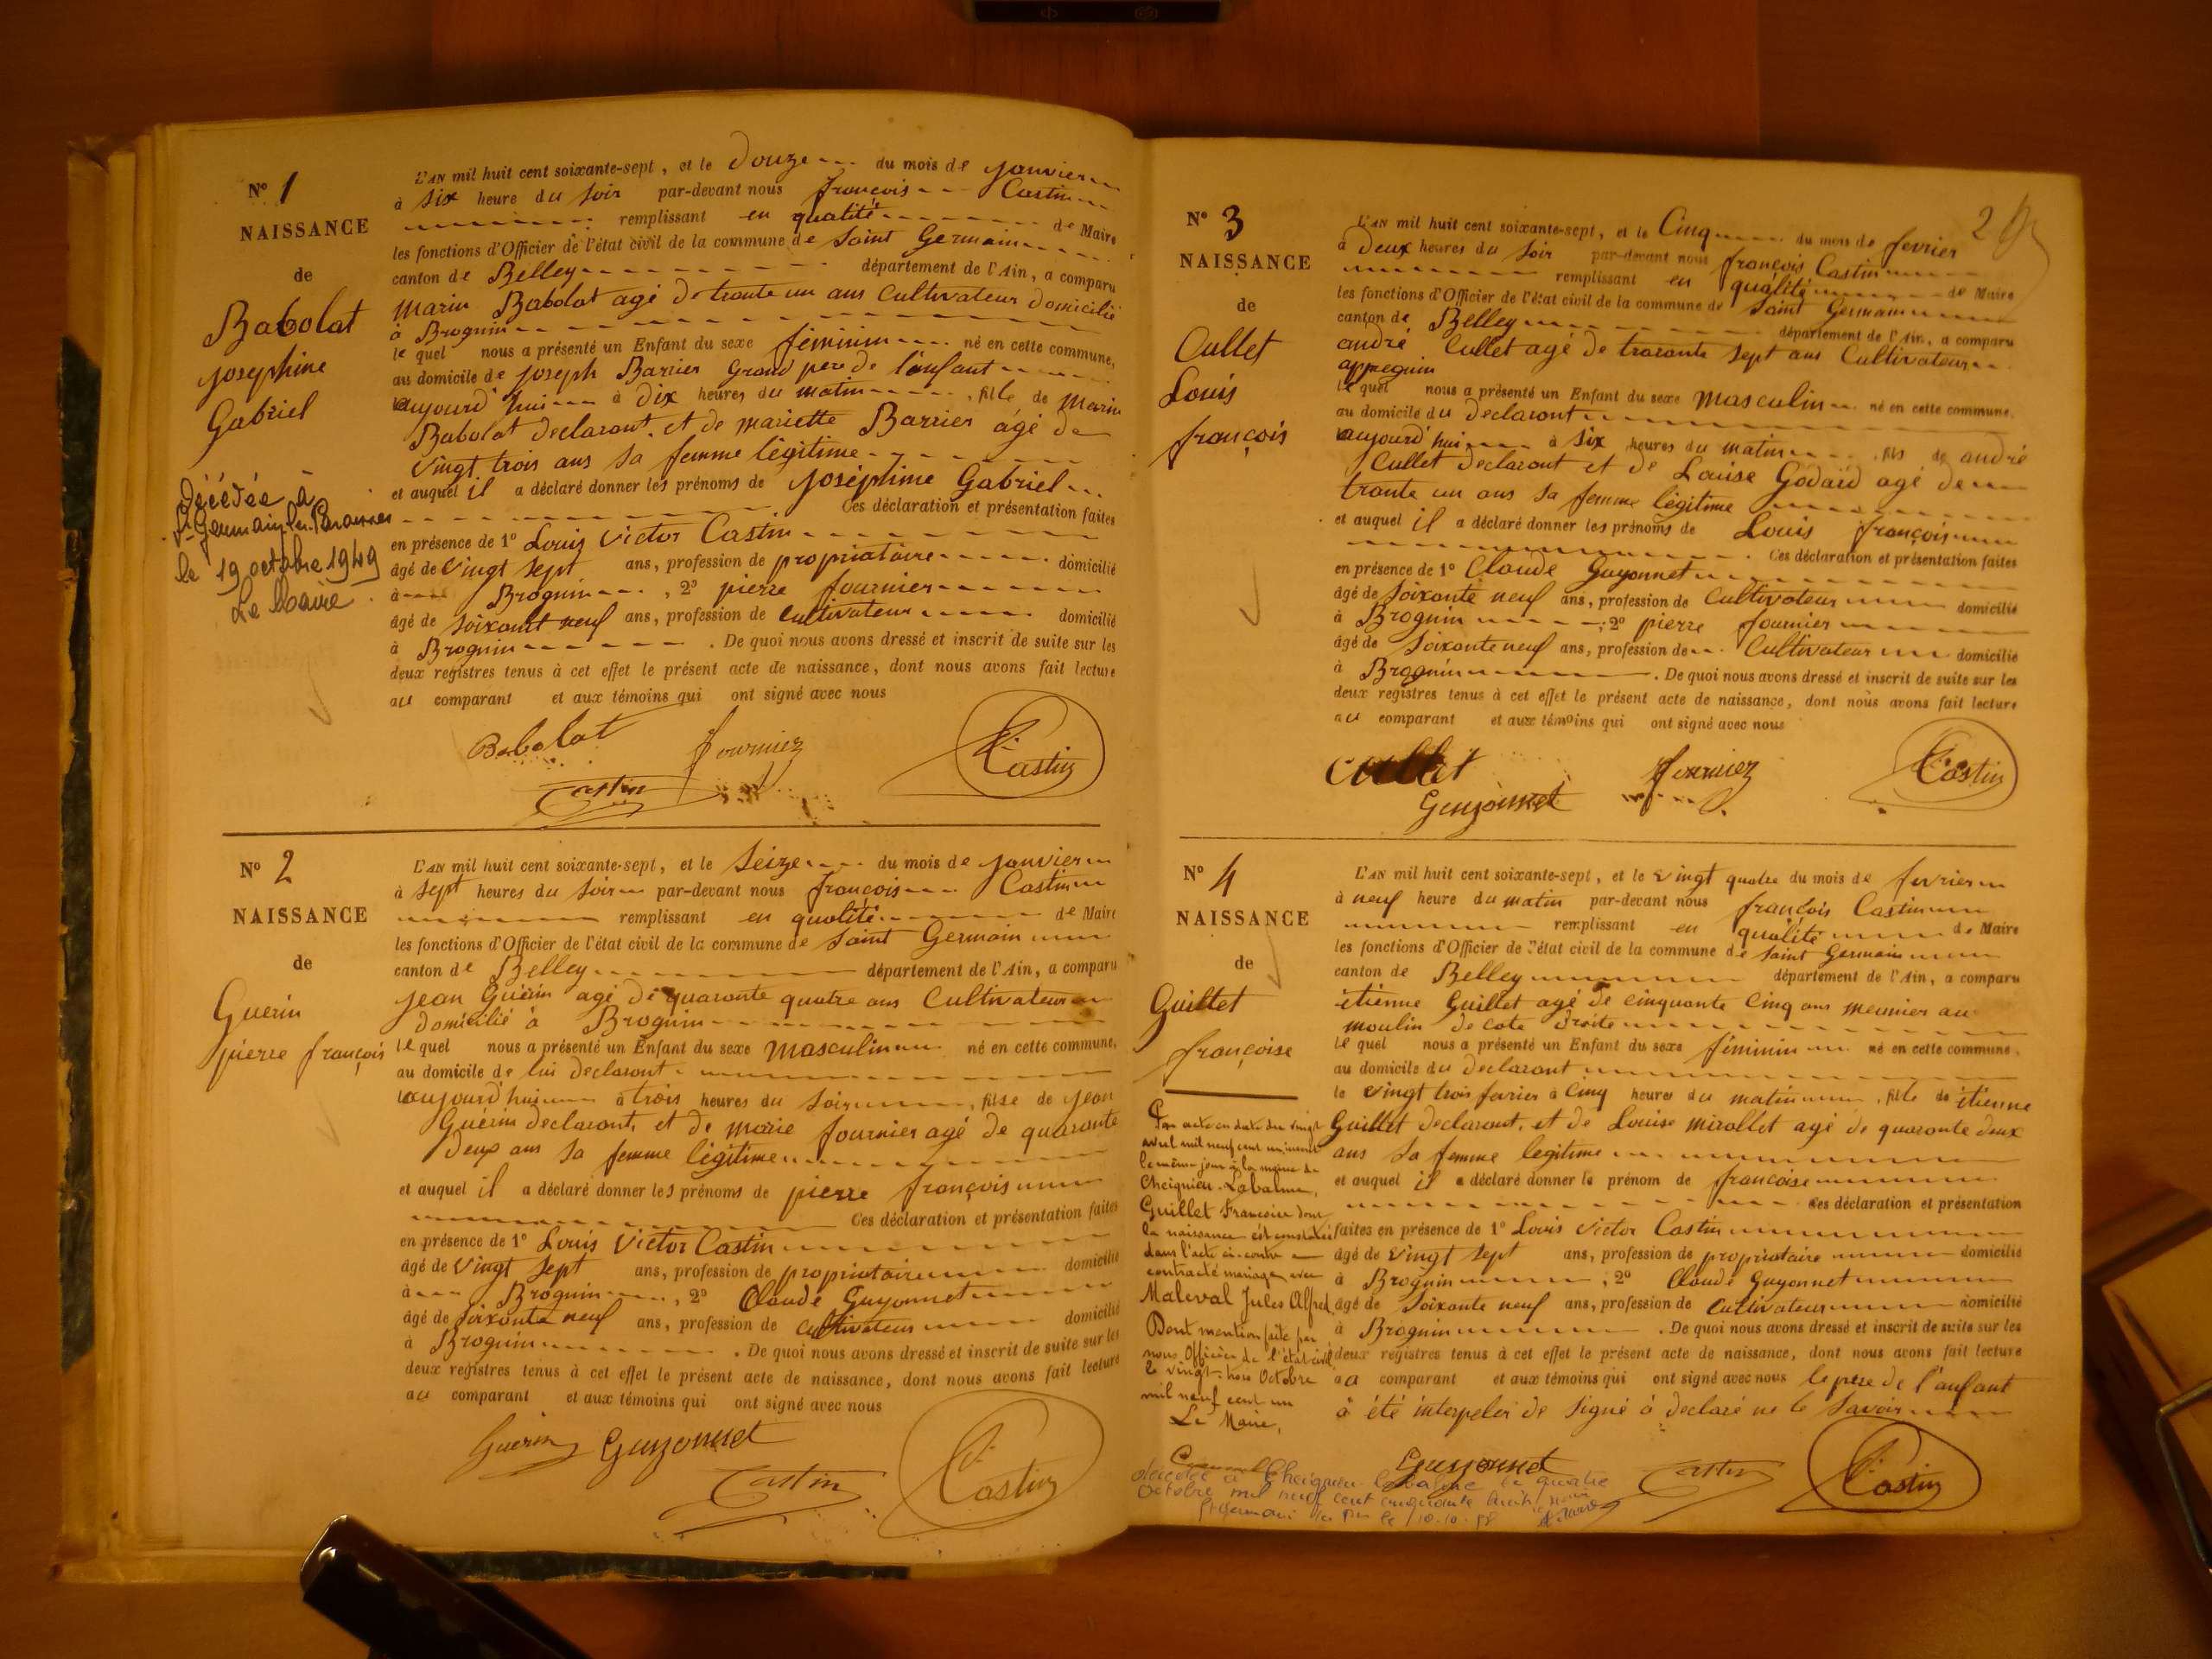 N° 1
NAISSANCE
de
Babolat
Joséphine
Gabriel
décédée à
St Germain les Paroisses
le 19 octobre 1949
Le Maire
L'AN mil huit cent soixante-sept, et le douze du mois de janvier
à six heure du soir par-devant nous françois Castin
remplissant en qualité de Maire
les fonctions d'Officier de l'état civil de la commune de Saint Germain
canton de Belley département de l'Ain, a comparu
Marin Babolat agé de trante un ans Cultivateur domicilié
à Brognin
le quel nous a présenté un Enfant du sexe féminim né en cette commune,
au domicile de joseph Barrier Grand pere de l'anfant
aujourd'hui à dix heures du matin, fille de Marin
Babolat declarant, et de mariette Barrier agé de
vingt trois ans sa femme légitime
et auquel il a déclaré donner les prénoms de Joséphine Gabriel
Ces déclaration et présentation faites
en présence de 1° Louis Victor Castin
âgé de vingt sept ans, profession de propriataire domicilié
à Brognin, 2° pierre fournier
âgé de soixant neuf ans, profession de cultivateur domicilié
à Brognin. De quoi nous avons dressé et inscrit de suite sur les
deux registres tenus à cet effet le présent acte de naissance, dont nous avons fait lecture
au comparant et aux témoins qui ont signé avec nous
Babolat fournier Castin
Castin
N° 2
NAISSANCE
de
Guerin
pierre françois
L'AN mil huit cent soixante-sept, et le Seize du mois de janvier
à sept heures du soir par-devant nous françois Castin
remplissant en qualité de Maire
les fonctions d'Officier de l'état civil de la commune de Saint Germain
canton de Belley département de l'Ain, a comparu
jean Guérin agé de quarante quatre ans Cultivateur
domicilié à Brognin
le quel nous a présenté un Enfant du sexe masculin né en cette commune,
au domicile de lui declarant
aujourd'hui à trois heures du soir, fils de jean
Guérin declarant, et de marie fournier agé de quarante
deux ans sa femme légitime
et auquel il a déclaré donner les prénoms de pierre françois
Ces déclaration et présentation faites
en présence de 1° Louis Victor Castin
âgé de vingt sept ans, profession de propriataire domicilié
à Brognin, 2° Claude Guyonnet
âgé de soixante neuf ans, profession de cultivateur domicilié
à Brognin. De quoi nous avons dressé et inscrit de suite sur les
deux registres tenus à cet effet le présent acte de naissance, dont nous avons fait lecture
au comparant et aux témoins qui ont signé avec nous
Guerin Guyonnet
Castin Castin
2
N° 3
NAISSANCE
de
Cullet
Louis
françois
L'AN mil huit cent soixante-sept, et le Cinq du mois de fevrier
à deux heures du soir par-devant nous françois Castin
remplissant en qualité de Maire
les fonctions d'Officier de l'état civil de la commune de Saint Germain
canton de Belley département de l'Ain, a comparu
andré Cullet agé de trarante sept ans Cultivateur
appregnin
le quel nous a présenté un Enfant du sexe masculin né en cette commune,
au domicile du declarant
aujourd'hui à six heures du matin, fils de andré
Cullet declarant et de Louise Godard agé de
trante un ans sa femme légitime
et auquel il a déclaré donner les prénoms de Louis françois
Ces déclaration et présentation faites
en présence de 1° Claude Guyonnet
âgé de Soixante neuf ans, profession de Cultivateur domicilié
à Brognin; 2° pierre fournier
âgé de Soixante neuf ans, profession de Cultivateur domicilié
à Brognin. De quoi nous avons dressé et inscrit de suite sur les
deux registres tenus à cet effet le présent acte de naissance, dont nous avons fait lecture
au comparant et aux témoins qui ont signé avec nous
Cullet fournier Castin
Guyonnet
N° 4
NAISSANCE
de
Guillet
françoise
Par acte en date du vingt
avril mil neuf cent un,
le même jour à la mairie de
Cheignieu-Labalme,
Guillet Francoise dont
la naissance est constatée
dans l'acte ci-contre
contracté mariage avec
Maleval Jules Alfred
Dont mention faite par
nous Officier de l'état civil
le vingt-trois Octobre
mil neuf cent un
Le Maire,
L'AN mil huit cent soixante-sept, et le vingt quatre du mois de fevrier
à neuf heure du matin par-devant nous françois Castin
remplissant en qualité de Maire
les fonctions d'Officier de l'état civil de la commune de Saint Germain
canton de Belley département de l'Ain, a comparu
étienne Guillet agé de cinquante Cinq ans meunier au
moulin de cote droite
le quel nous a présenté un Enfant du sexe féminin né en cette commune,
au domicile du declarant
le vingt trois fevrier à Cinq heures du matin, fille de étienne
Guillet declarant, et de Louise mirallet agé de quarante deux
ans sa femme legitime
et auquel il a déclaré donner le prénom de françoise
Ces déclaration et présentation
faites en présence de 1° Louis Victor Castin
âgé de vingt sept ans, profession de propriataire domicilié
à Brognin; 2° Claude Guyonnet
âgé de Soixante neuf ans, profession de Cultivateur domicilié
à Brognin. De quoi nous avons dressé et inscrit de suite sur les
deux registres tenus à cet effet le présent acte de naissance, dont nous avons fait lecture
au comparant et aux témoins qui ont signé avec nous le pere de l'anfant
à été interpeler de signé à declaré ne le savoir
Guyonnet Castin Castin
décédée à Cheignieu Labalme le quatre
Octobre mil neuf cent cinquante huit
St Germain les Par le 10.10.58 Le Maire